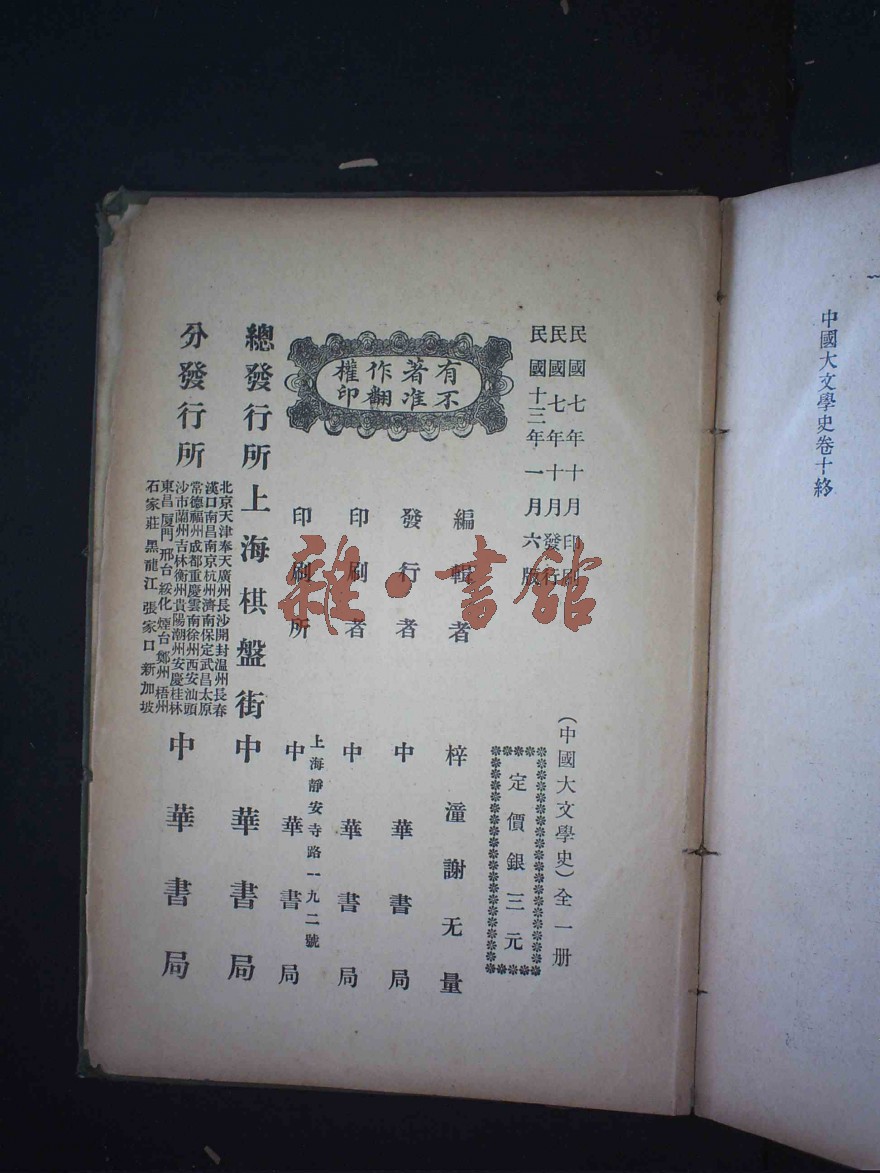 中國大文學史卷十終
民國七年十月印刷
民國七年十月發行
民國十三年一月六版
（中國大文學史）全一册
定價銀三元
有著作權
不准翻印
編輯者 梓潼謝无量
發行者 中華書局
印刷者 中華書局
上海靜安寺路一九二號
印刷所 中華書局
總發行所 上海棋盤街 中華書局
分發行所
北京天津奉天廣州長沙開封温州長春
漢口南昌南京杭州濟南保定武昌太原
常德福州成都重慶雲南徐州西安汕頭
沙市蘭州吉林衡州貴陽潮州安慶桂林
東昌厦門邢台綏化煙台鄭州梧州
石家莊黑龍江張家口新加坡
中華書局
雜·書館